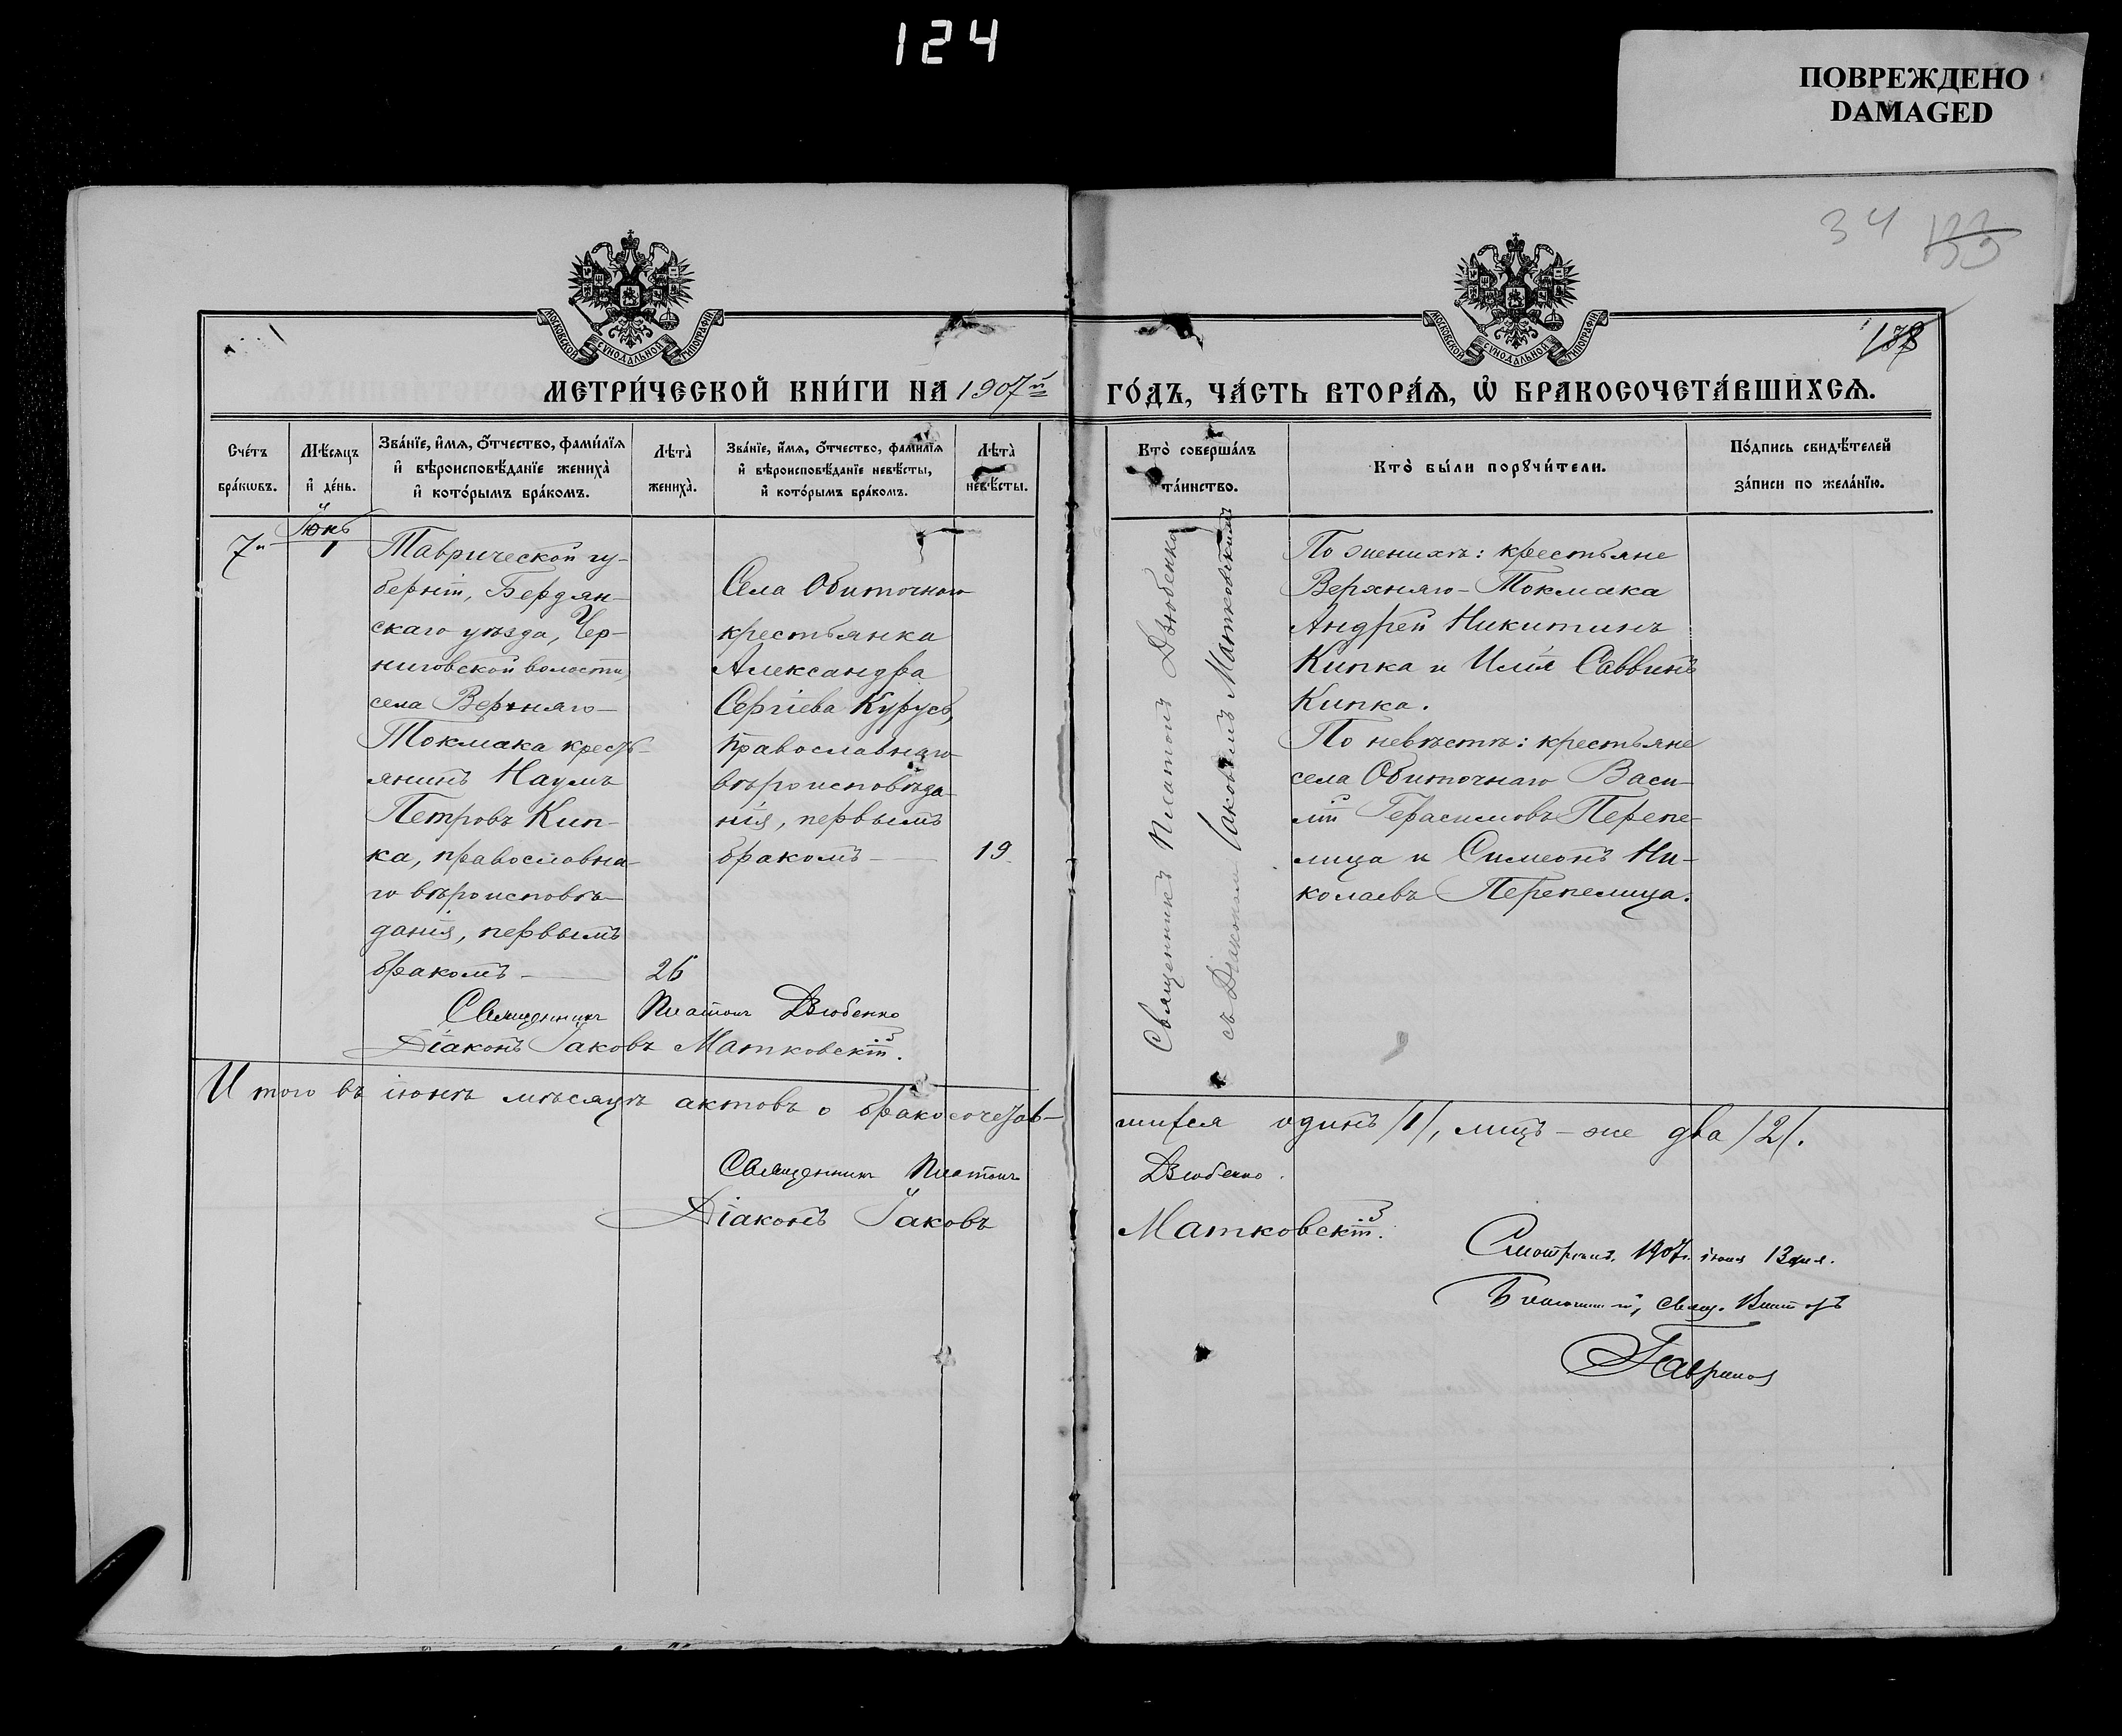 124
ПОВРЕЖДЕНО
DAMAGED
34
МОСКОВСКОЙ СѴНОДАЛЬНОЙ ТИПОГРАФІИ
МОСКОВСКОЙ СѴНОДАЛЬНОЙ ТИПОГРАФІИ
МЕТРИ́ЧЕСКОЙ КНИ́ГИ НА 1907й
ГО́ДЪ, ЧА́СТЬ ВТОРА́Ѧ, Ѡ҆ БРАКОСОЧЕТА́ВШИХСѦ.
Сче́тъ
бра́кѡвъ.
Мѣ́сяцъ
и҆ де́нь.
Зва́нїе, и҆́мя, ѻ҆́тчество, фами́лїя
и҆ вѣроисповѣ́данїе жениха̀
и҆ кото́рымъ бра́комъ.
Лѣта̀
жениха̀.
Зва́нїе, и҆́мя, ѻ҆́тчество, фами́лїя
и҆ вѣроисповѣ́данїе невѣ́сты,
и҆ кото́рымъ бра́комъ.
Лѣта̀
невѣ́сты.
Кто̀ соверша́лъ
та́инство.
Кто̀ бы́ли порꙋчи́тели.
По́дпись свидѣ́телей
за́писи по жела́нїю.
7й
Іюнь
1
Таврической гу-
берніи, Бердян-
скаго уѣзда, Чер-
ниговской волости,
села Верхняго-
Токмака кресть-
янинъ Наумъ
Петровъ Кип-
ка, православна-
го вѣроисповѣ-
данія, первымъ
бракомъ —
26
Села Обиточнаго
крестьянка
Александра
Сергіева Курусь,
православнаго
вѣроисповѣда-
нія, первымъ
бракомъ —
19
Священникъ Платонъ Дзюбенко
съ Діакономъ Іаковомъ Матковскимъ
По женихѣ: крестьяне
Верхняго-Токмака
Андрей Никитинъ
Кипка и Илія Саввинъ
Кипка.
По невѣстѣ: крестьяне
села Обиточнаго Васи-
лій Герасимовъ Перепе-
лица и Симеонъ Ни-
колаевъ Перепелица.
Священникъ Платонъ Дзюбенко
Діаконъ Іаковъ Матковскій.
Итого въ іюнѣ мѣсяцѣ актовъ о бракосочетав-
шихся одинъ /1/, лицъ-же два /2/.
Священникъ Платонъ Дзюбенко.
Діаконъ Іаковъ Матковскій.
Смотрѣлъ. 1907 г. іюня 13 дня.
Благочинный, свящ. Викторъ
Гавриловъ